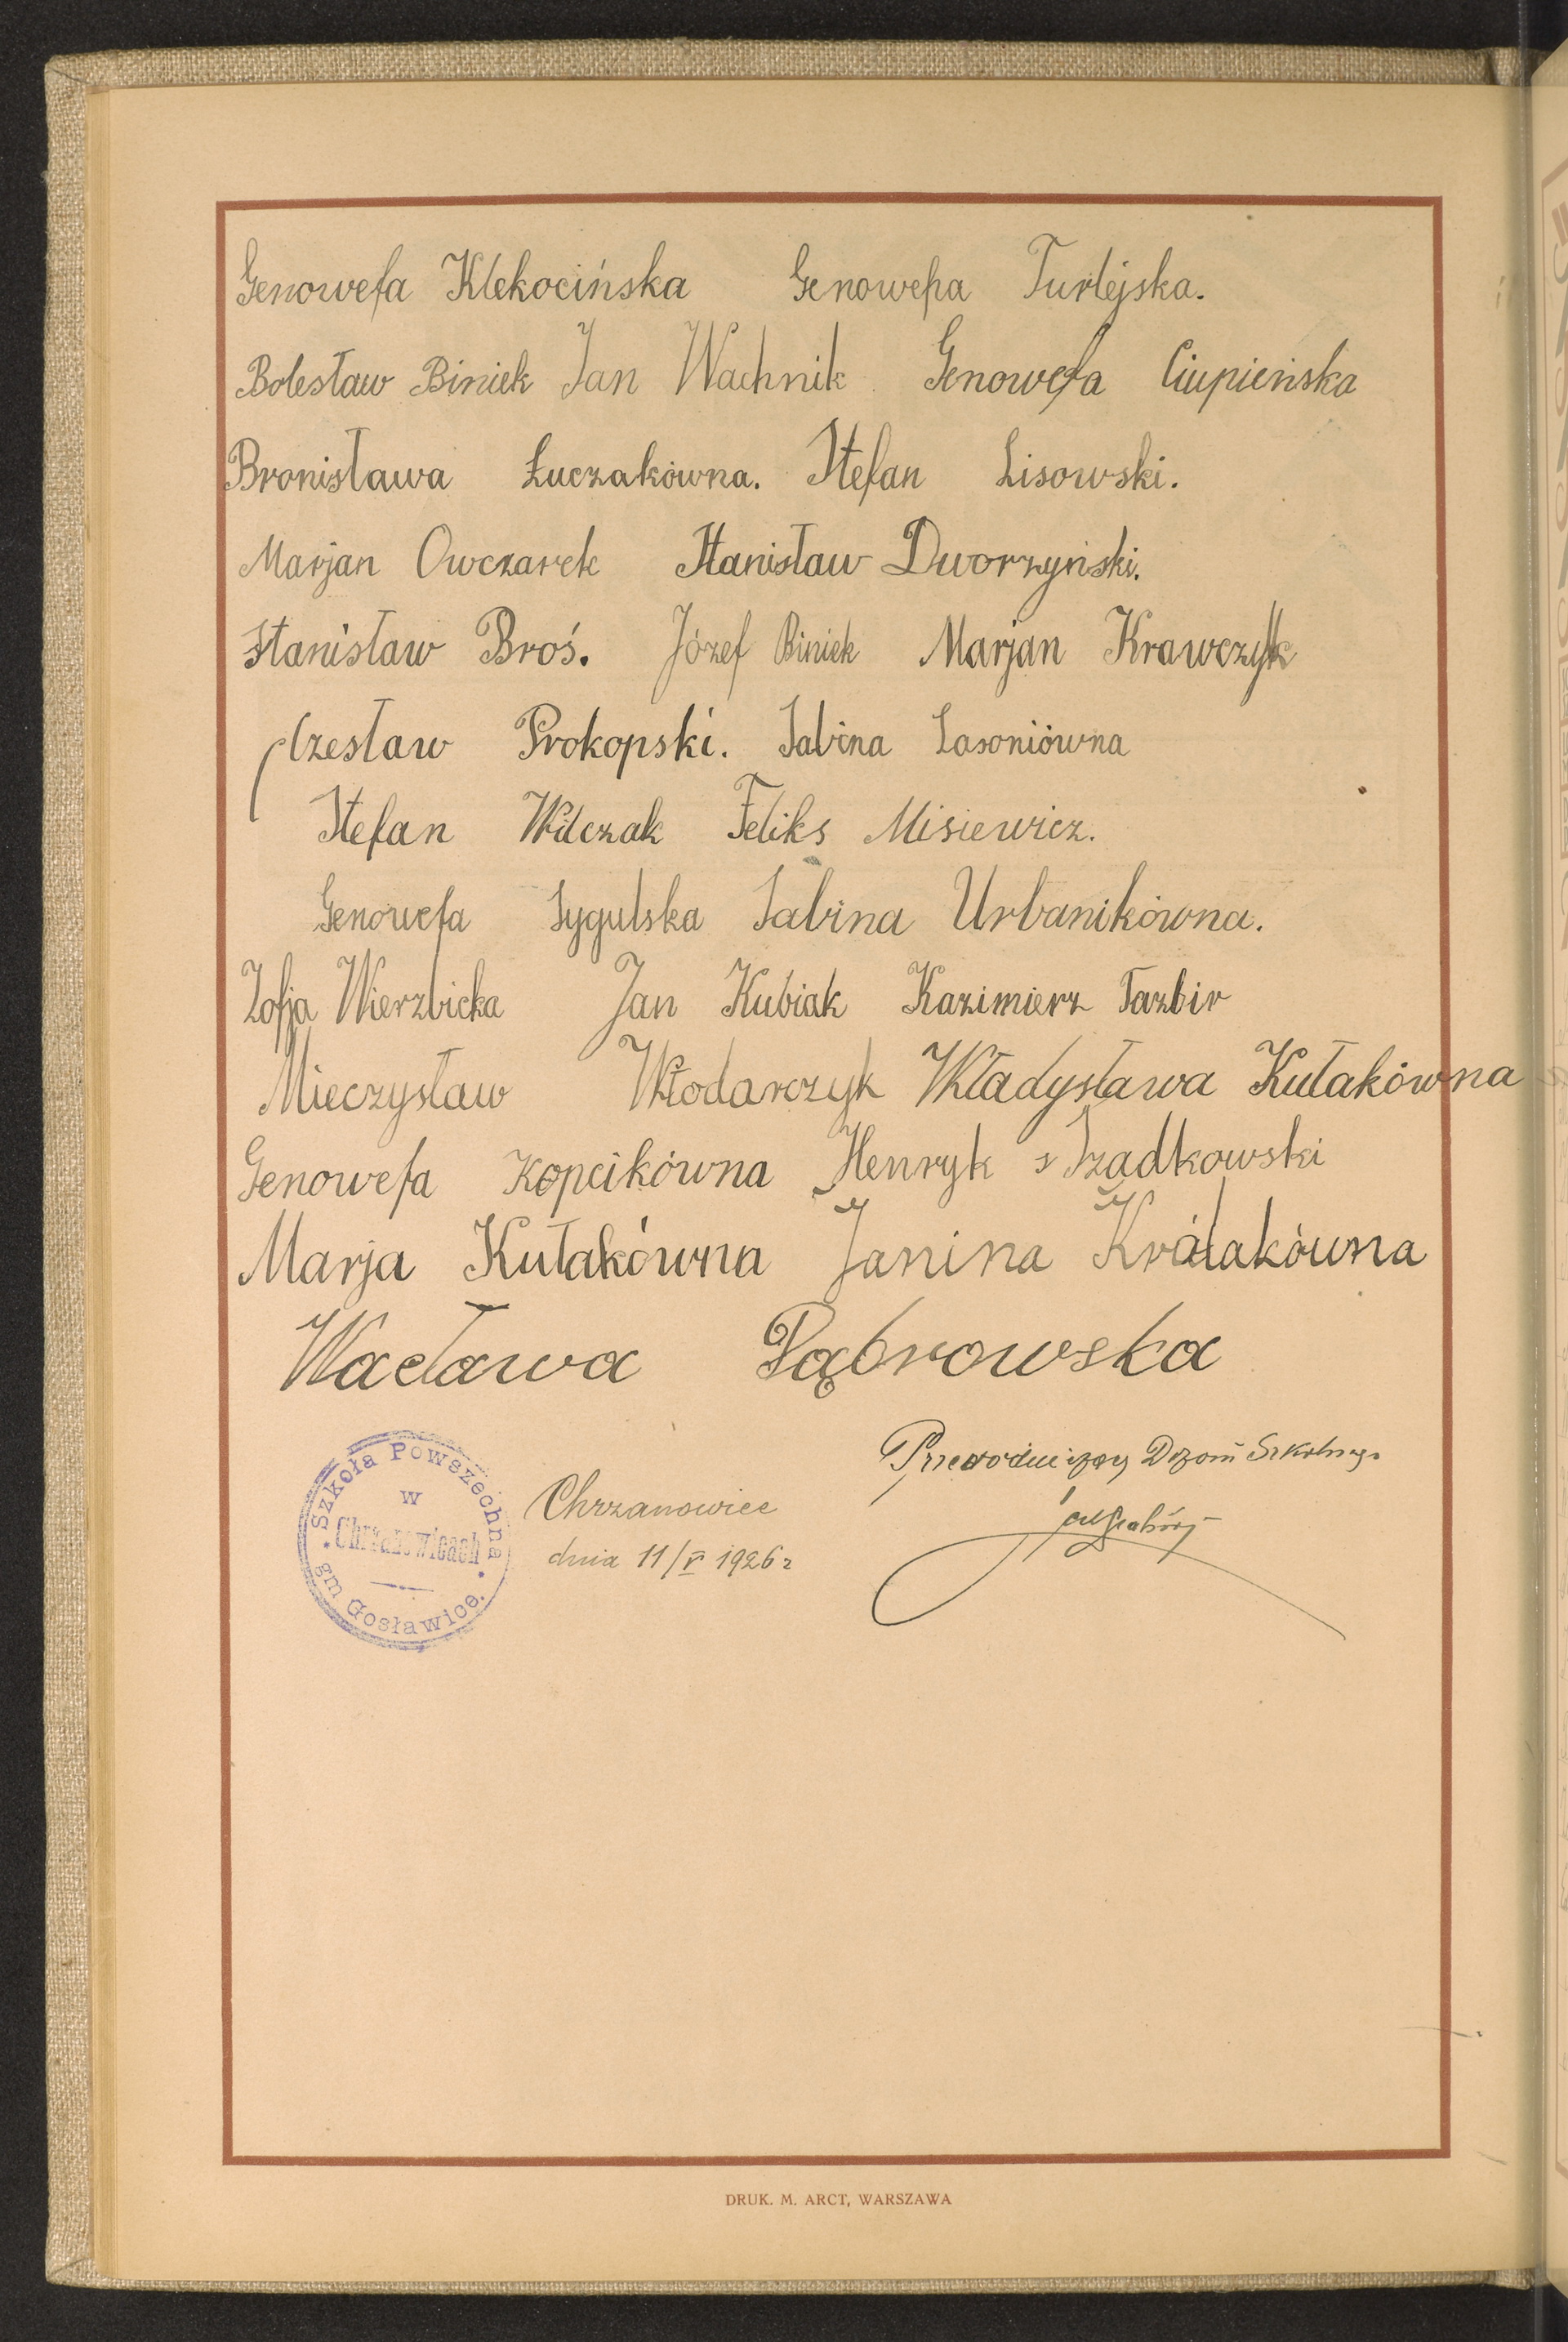 Genowefa Klekocińska Genowefa Turlejska.
Bolesław Biniek Jan Wachnik Genowefa Ciupieńska
Bronisława Łuczakówna. Stefan Lisowski.
Marjan Owczarek Stanisław Dworzyński.
Stanisław Broś. Józef Biniek Marjan Krawczyk
Czesław Prokopski. Sabina Lasoniówna
Stefan Wilczak Feliks Misiewicz.
Genowefa Sygulska Sabina Urbanikówna.
Zofja Wierzbicka Jan Kubiak Kazimierz Tazbir
Mieczysław Włodarczyk Władysława Kułakówna
Genowefa Kopcikówna Henryk Szadkowski
Marja Kułakówna Janina Królakówna
Wacława Dąbrowska
Szkoła Powszechna
w
Chrzanowicach
gm Gosławice.
Chrzanowice
dnia 11/V 1926 r
Przewodniczący Dozoru Szkolnego
DRUK. M. ARCT, WARSZAWA